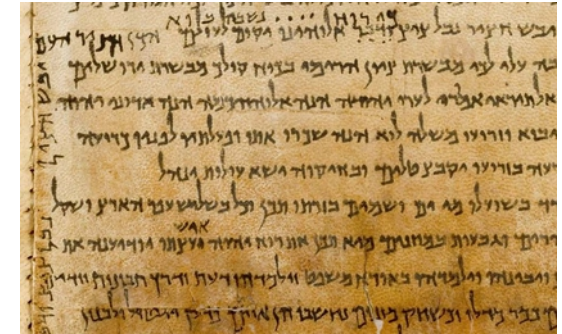 כי רוח .... נשבה בוא
חציר נבל ציץ ודבר אלוהינו יקום לעולם הכן חציר העם
עלי לכי מבשרת ציון הרימי בכוח קולך מבשרת ירושלים
אל תיראי אמרי לערי יהודה הנה אלוהיכמה הנה אדוני יהוה
יבוא וזרועו משלה לוא הנה שכרו אתו ופעלתיו לפניו כרועה
בזרועו יקבץ טלים ובחיקוה ישא עולות ינהל
בשועלו מי ים ושמים בזרתו תכן וכל בשליש עפר הארץ ושקל
איש
וגבעות במזנים מיא תכן את רוח יהוה ועצתו יודיענה את
ויבינהו וילמדהו באורח משפט וילמדהו דעת ודרך תבונות
כמר מדלי וכשחק מזנים נחשבו הן איים כדק יטול ולבנון
יבש חציר נבל